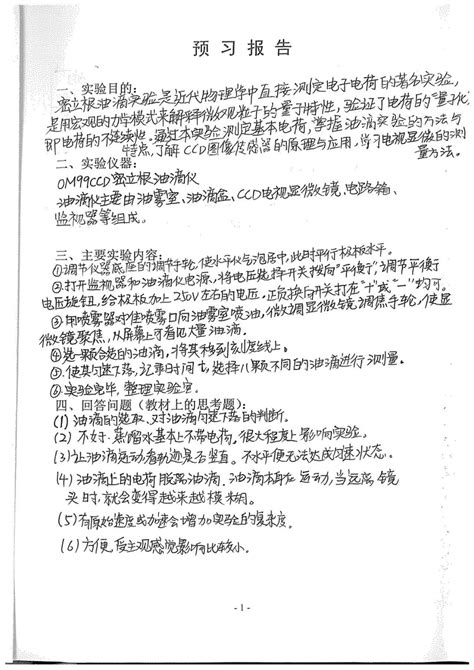 预习报告
一、实验目的:
密立根油滴实验是近代物理学中直接测定电子电荷的著名实验,
是用宏观的力学模式来解释微观粒子的量子特性,验证了电荷的"量子化"
即电荷的不连续性。通过本实验测定基本电荷,掌握油滴实验的方法与
特点,了解CCD图像传感器的原理与应用,学习电视显微的测
量方法。
二、实验仪器:
OM99CCD密立根油滴仪
油滴仪主要由油雾室、油滴盒、CCD电视显微镜、电路箱、
监视器等组成。
三、主要实验内容:
①调节仪器底座的调节手轮,使水平仪气泡居中,此时平行极板水平。
②打开监视器和油滴仪电源,将电压选择开关拨向"平衡",调节平衡
电压旋钮,给极板加上250V左右的电压,正负换向开关打在"+"或"-"均可。
③用喷雾器对准喷雾口向油雾室喷油,微调显微镜调焦手轮,使显
微镜聚焦,从屏幕上可看见大量油滴。
④选一颗合适的油滴,将其移到刻度线上。
⑤使其匀速下落,记录时间t,选择几颗不同的油滴进行测量。
⑥实验完毕,整理实验室。
四、回答问题(教材上的思考题):
(1)油滴的选取、对油滴匀速下落的判断。
(2)不好.蒸馏水基本上不带电荷,很大程度上影响实验。
(3)让油滴运动看轨迹是否竖直。不水平便无法达成匀速状态。
(4)油滴上的电荷脱离油滴、油滴本身在运动,当远离镜
头时,就会变得越来越模糊。
(5)有原始速度或加速会增加实验的复杂度。
(6)方便,受主观感觉影响比较小。
- 1 -